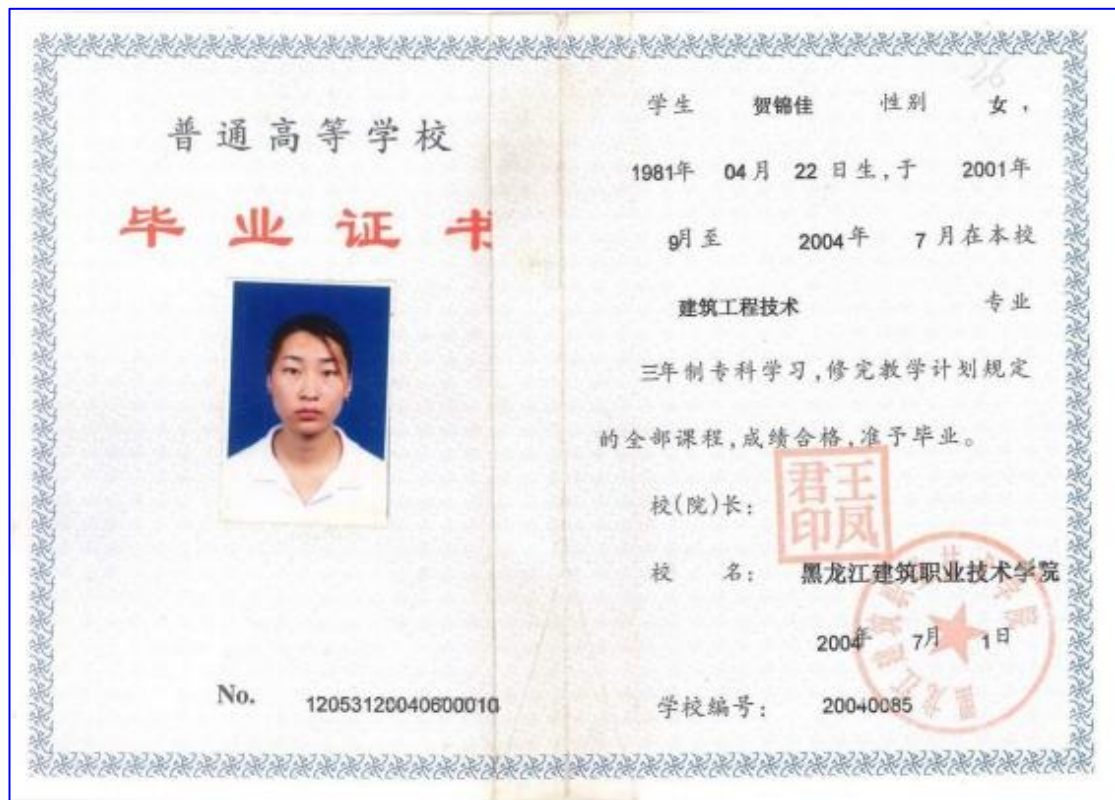 普通高等学校
毕业证书
No. 12053120040600010
学生 贺锦佳 性别 女，
1981年 04月 22日生，于 2001年
9月至 2004年 7月在本校
建筑工程技术 专业
三年制专科学习，修完教学计划规定
的全部课程，成绩合格，准予毕业。
校(院)长：
君王
印凤
校 名： 黑龙江建筑职业技术学院
黑龙江建筑职业技术学院
2004年 7月 1日
学校编号： 20040085
26